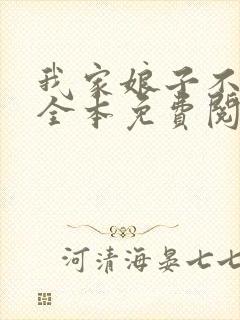 我家娘子不
全本免費閱
河清海晏七七